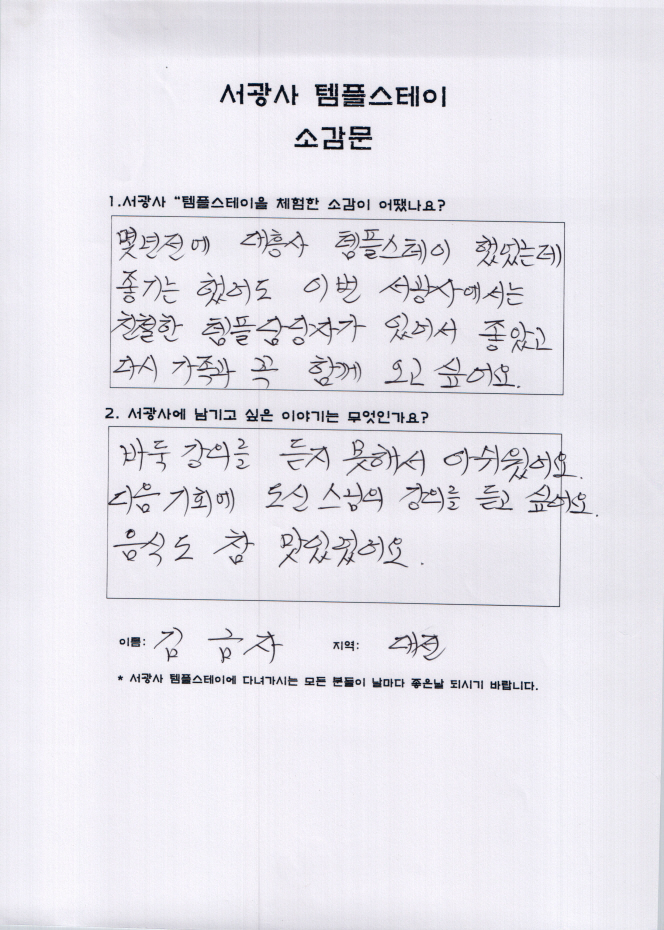 서광사 템플스테이
소감문
1.서광사 "템플스테이을 체험한 소감이 어땠나요?
몇년전에 대흥사 템플스테이 했었는데
좋기는 했어도 이번 서광사에서는
친절한 템플담당자가 있어서 좋았고
다시 가족과 꼭 함께 오고 싶어요.
2. 서광사에 남기고 싶은 이야기는 무엇인가요?
바둑 강의를 듣지 못해서 아쉬웠어요.
다음 기회에 도신 스님의 강의를 듣고 싶어요.
음식도 참 맛있었어요.
이름: 김금자 지역: 대전
* 서광사 템플스테이에 다녀가시는 모든 분들이 날마다 좋은날 되시기 바랍니다.